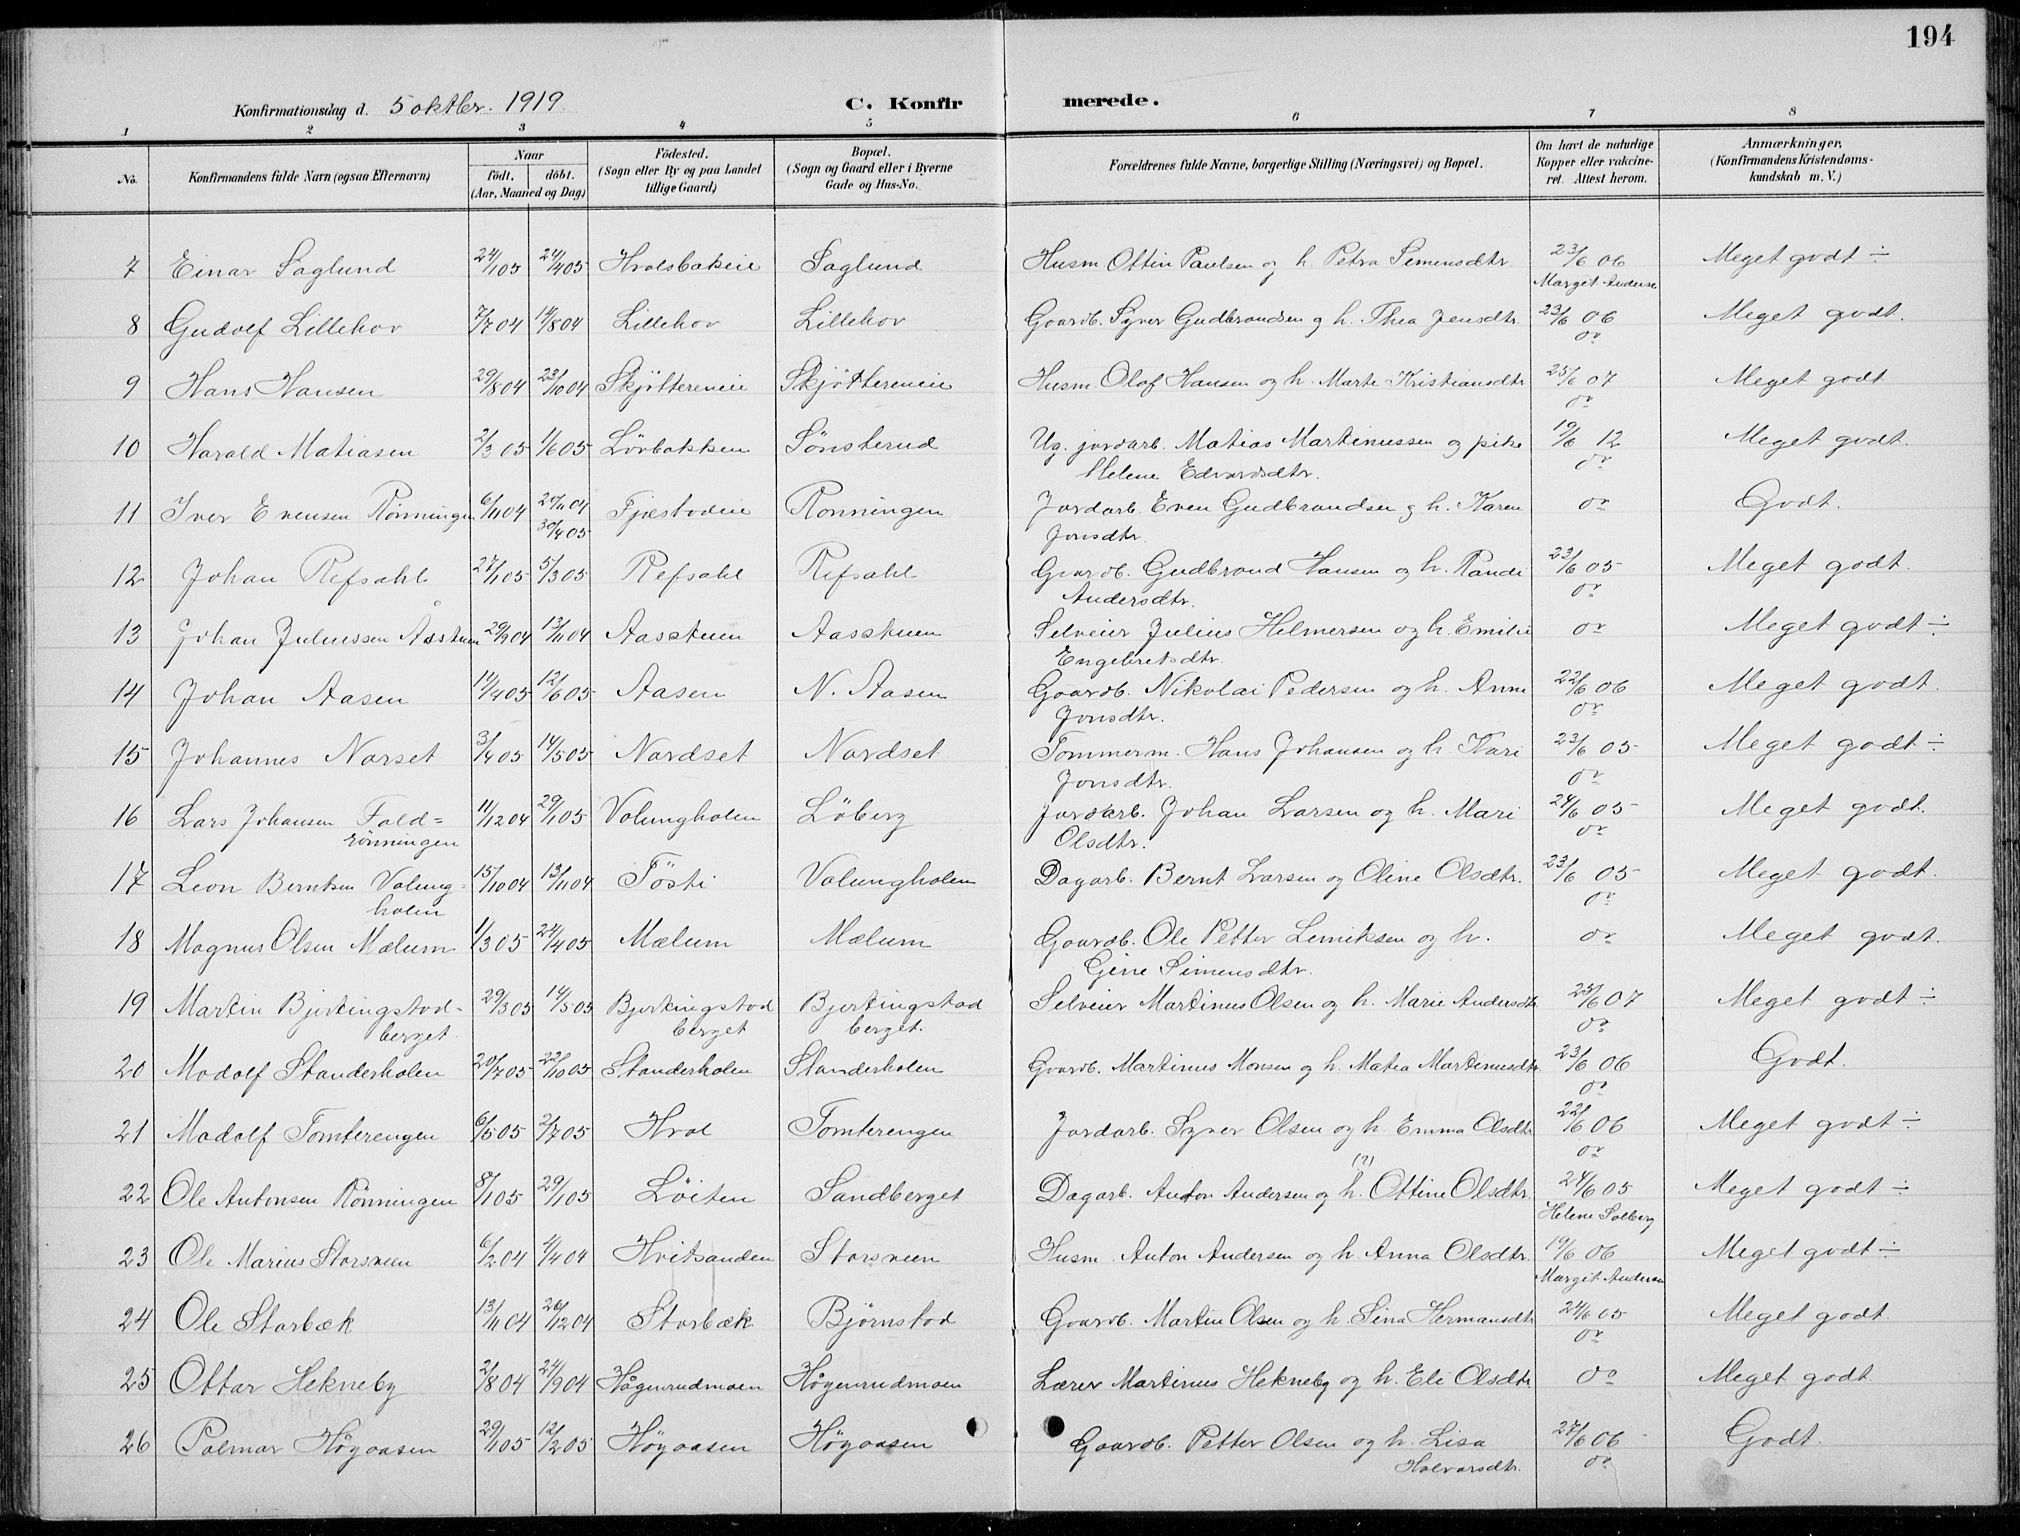 194
Konfirmationsdag d. 5 oktbr. 1919. C. Konfirmerede.
1 2 3 4 5 6 7 8
No. Konfirmandens fulde Navn (ogsaa Efternavn) Naar født. døbt. (Aar, Maaned og Dag) Födested. (Sogn eller By og paa Landet tillige Gaard) Bopæl. (Sogn og Gaard eller i Byerne Gade og Hus-No. Forældrenes fulde Navne, borgerlige Stilling (Næringsvei) og Bopæl. Om havt de naturlige Kopper eller vakcineret. Attest herom. Anmærkninger, (Konfirmandens Kristendomskundskab m. V.)
7 Einar Saglund 24/1 05 24/4 05 Hvalsbakeie Saglund Husm. Ottin Paulsen og h. Petra Simensdtr. 23/6 06 Meget godt ÷
Marget Andersen
8 Gudolf Lillehov 7/7 04 14/8 04 Lillehov Lillehov Gaardb. Syver Gudbrandsen og h. Thea Jensdtr. 23/6 06 Meget godt.
do
9 Hans Hansen 29/8 04 23/10 04 Skjøttereneie Skjøttereneie Husm. Olof Hansen og h. Marte Kristiansdtr 25/6 07 Meget godt
do
10 Harald Matiasen 2/3 05 1/6 05 Lövbakken Sönsterud Ug. jordarb. Matias Martinussen og pike 19/6 12 Meget godt.
Helene Edvardsdtr. do
11 Iver Evensen Rönningen 6/11 04 24/11 04 Fjæstadeie Ronningen Jordarb. Even Gudbrandsen og h. Karen do Godt.
30/4 05 Jonsdtr.
12 Johan Refsahl 27/1 05 5/3 05 Refsahl Refsahl Gaardb. Gudbrand Hansen og h. Randi 23/6 05 Meget godt.
Andersdtr. do
13 Johan Juliussen Åsstuen 29/9 04 13/11 04 Aasstuen Aasstuen Selveier Julius Helmersen og h. Emilie do Meget godt ÷
Engebretsdtr.
14 Johan Aasen 14/4 05 12/6 05 Aasen N. Aasen Gaardb. Nikolai Pedersen og h. Anne 22/6 06 Meget godt.
Jonsdtr. do
15 Johannes Norset 3/4 05 14/5 05 Nordset Nordset Tommerm. Hans Johansen og h. Kari 23/6 05 Meget godt ÷
Jonsdtr. do
16 Lars Johansen Fald= 11/12 04 29/1 05 Volungholen Löberg Jordarb. Johan Larsen og h. Mari 24/6 05 Meget godt.
rönningen Olsdtr. do
17 Leon Berntsen Volung= 15/10 04 13/11 04 Tösti Volungholen Dagarb. Bernt Larsen og Oline Olsdtr. 23/6 05 Meget godt.
holen do
18 Magnus Olsen Mælum 1/3 05 24/4 05 Mælum Mælum Gaardb. Ole Petter Lemiksen og h. do Meget godt.
Gine Simensdtr.
19 Martin Bjertingstad- 29/3 05 14/5 05 Bjertingstad Bjertingstad Selveier Martinus Olsen og h. Marie Andersdtr 25/6 07 Meget godt ÷
berget berget berget. do
20 Modolf Standerholen 20/7 05 22/10 05 Standerholen Standerholen Gaardb. Martinus Monsen og h. Matea Martinusdtr. 23/6 06 Godt.
do
21 Modolf Tomterengen 6/5 05 2/7 05 Hvol Tomterengen Jordarb. Syver Olsen og h. Emma Olsdtr. 22/6 06 Meget godt ÷
do
22 Ole Antonsen Rönningen 8/1 05 29/1 05 Löiten Sandberget Dagarb. Anton Andersen og h. (?) Ottine Olsdtr. 24/6 05 Meget godt ÷
Helene Solberg
23 Ole Marius Storsveen 6/2 04 4/4 04 Hvitsanden Storsveen Husm. Anton Andersen og h. Anna Olsdtr. 19/6 06 Meget godt ÷
Margit Andersen
24 Ole Storbæk 13/11 04 26/12 04 Storbæk Björnstad Gaardb. Martin Olsen og h. Sina Hermansdtr. 24/6 05 Meget godt.
do
25 Ottar Hekneby 2/8 04 24/9 04 Högenrudmoen Högenrudmoen Lærer Martinus Hekneby og h. Eli Olsdtr. do Meget godt
26 Palmar Högaasen 29/1 05 12/2 05 Högaasen Högaasen Gaardb. Petter Olsen og h. Lisa 27/6 06 Godt.
Halvorsdtr. do